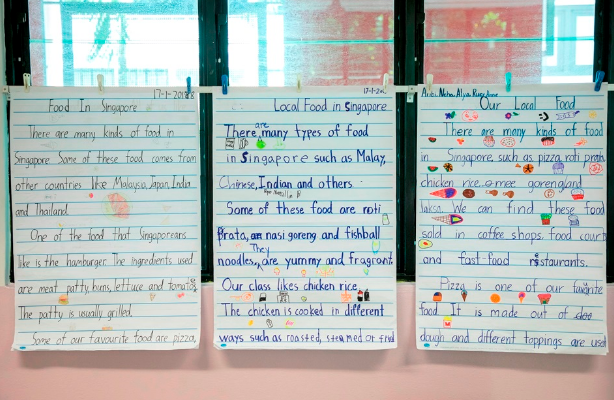 17-1-2018
Food In Singapore
There are many kinds of food in
Singapore. Some of these food comes from
other countries like Malaysia, Japan, India
and Thailand.
One of the food that Singaporeans
like is the hamburger. The ingredients used
are meat patty, buns, lettuce and tomatos
The patty is usually grilled.
Some of our favourite food are pizza,
17-1-20
Local Food in Singapore
are
There many types of food
in Singapore such as Malay,
Chinese, Indian and others
Some of these food are roti
prata, nasi goreng and fishball
They
noodles, are yummy and fragrant.
Our class likes chicken rice.
The chicken is cooked in different
ways such as roasted, steamed or fried
Our Local Food
There are many kinds of food
in Singapore such as pizza, roti prata,
chicken rice, mee goreng and
laksa. We can find these food
sold in coffee shops, food court
and fast-food restaurants.
Pizza is one of our favourite
food. It is made out of
dough and different toppings are used